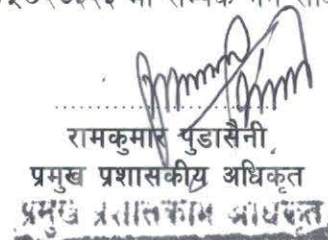 रामकुमार पुडासैनी
प्रमुख प्रशासकीय अधिकृत
प्रमुख प्रशासकीय अधिकृत